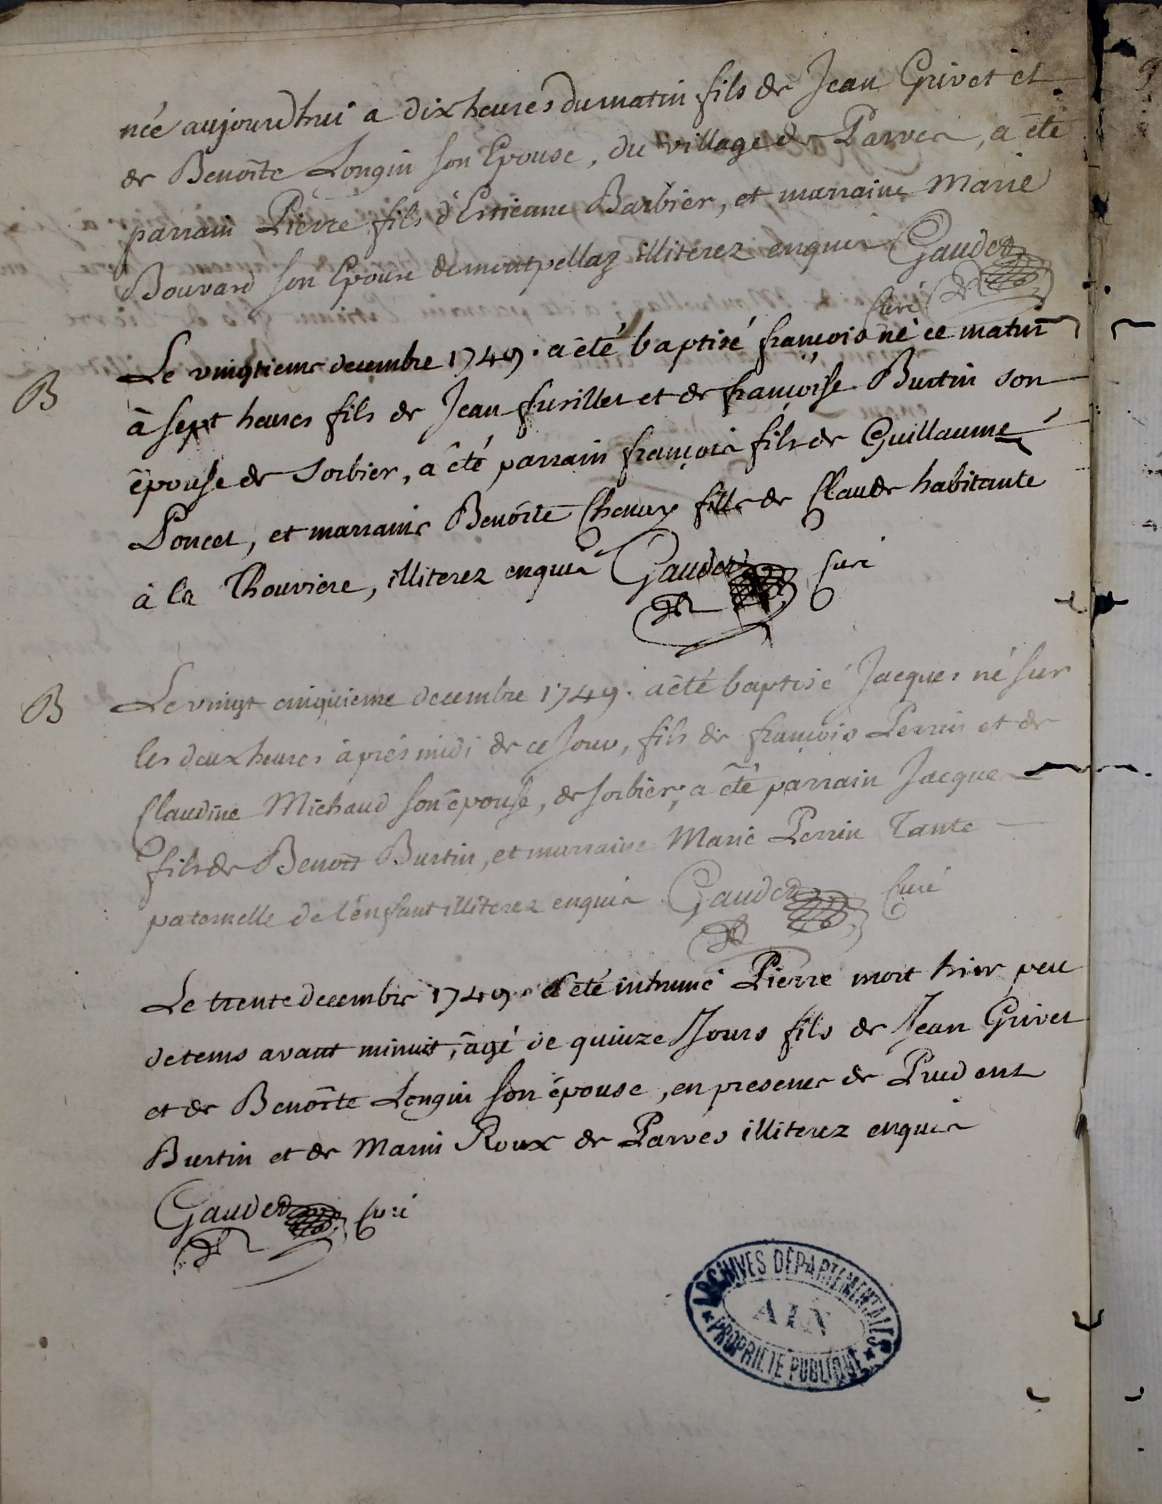 née aujourdhui a dix heures du matin fils de Jean Grivet et
de Benoîte Longin son Epouse, du village de Parves, a été
parrain Pierre fils d'Estienne Barbier, et marraine Marie
Bouvard son Epouse de montpellaz illiterez enquis Gaudet
Curé
B Le vingtieme decembre 1749. a été baptisé françois né ce matin
à sept heures fils de Jean fusillet et de françoise Burtin son
épouse de Sorbier, a été parrain françois fils de Guillaume
Poncet, et marraine Benoîte Chenux fille de Claude habitante
à la Thouviere, illiterez enquis Gaudet Curé
B Le vingt cinquieme decembre 1749. a été baptisé Jacques né sur
les deux heures après midi de ce Jour, fils de françois Perrin et de
Claudine Michaud son épouse, de sorbier, a été parrain Jacques
fils de Benoît Burtin, et marraine Marie Perrin Tante
paternelle de l'enfant illiterez enquis Gaudet Curé
Le trente decembre 1749. a été inhumé Pierre mort hier peu
de tems avant minuit, âgé de quinze Jours fils de Jean Grivet
et de Benoîte Longin son épouse, en presence de Prudent
Burtin et de Marin Roux de Parves illiterez enquis
Gaudet Curé
ARCHIVES DÉPARTEMENTALES
AIN
PROPRIÉTÉ PUBLIQUE